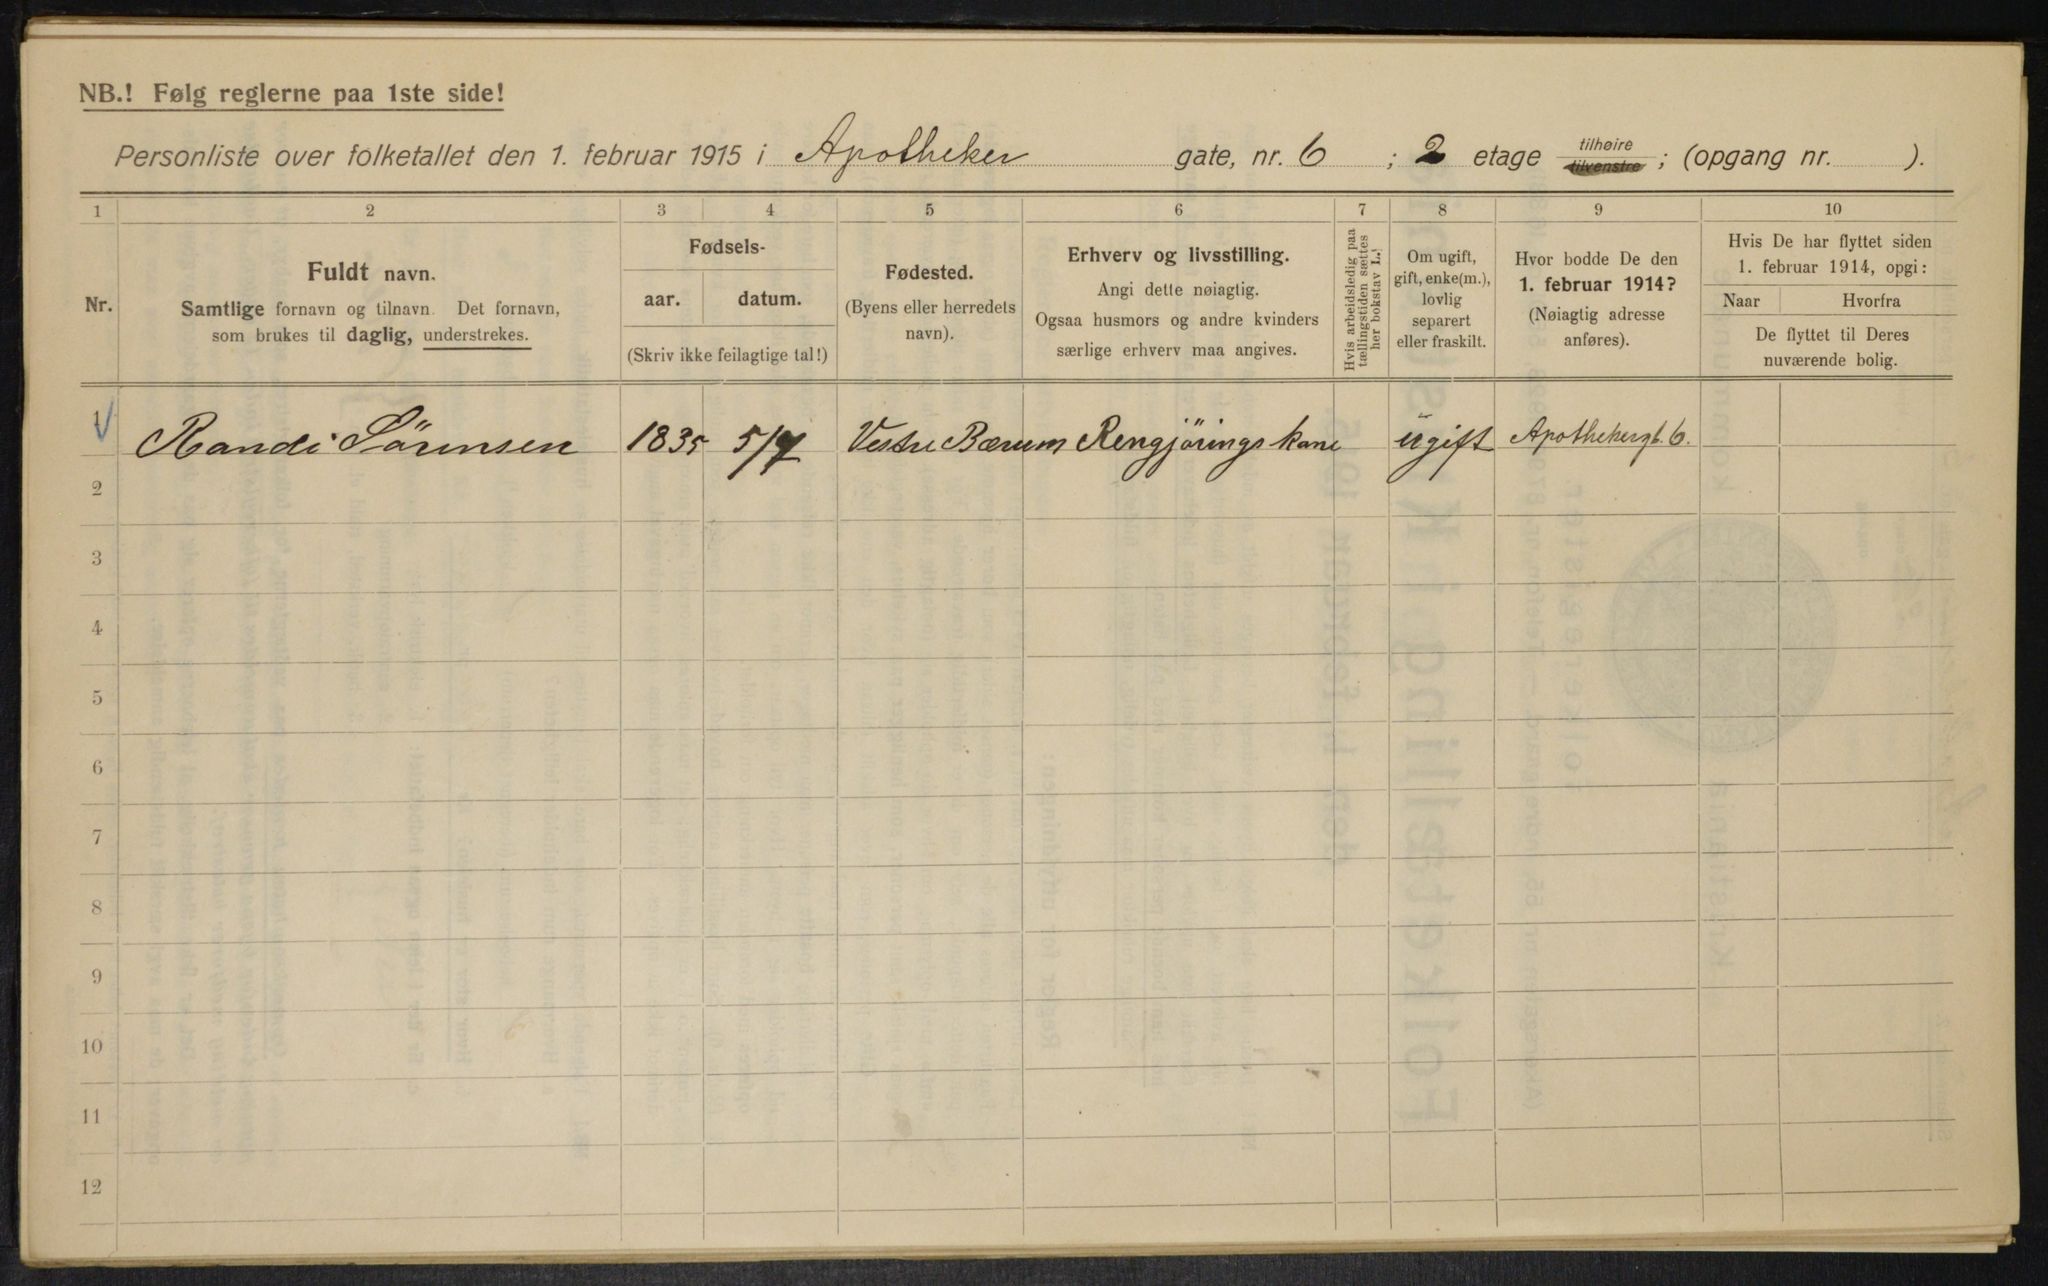 NB.! Følg reglerne paa 1ste side!
Personliste over folketallet den 1. februar 1915 i Apotheker gate, nr. 6 ; 2 etage tilhøire tilvenstre ; (opgang nr. ).
1 2 3 4 5 6 7 8 9 10
Nr.
Fuldt navn.
Samtlige fornavn og tilnavn. Det fornavn,
som brukes til daglig, understrekes.
Fødsels-
aar. datum.
(Skriv ikke feilagtige tal!)
Fødested.
(Byens eller herredets
navn).
Erhverv og livsstilling.
Angi dette nøiagtig.
Ogsaa husmors og andre kvinders
særlige erhverv maa angives.
Hvis arbeidsledig paa
tællingstiden sættes
her bokstav L.!
Om ugift,
gift, enke(m.),
lovlig
separert
eller fraskilt.
Hvor bodde De den
1. februar 1914?
(Nøiagtig adresse
anføres).
Hvis De har flyttet siden
1. februar 1914, opgi:
Naar Hvorfra
De flyttet til Deres
nuværende bolig.
1 Randi Sörensen 1835 5/7 Vestre Bærum Rengjörings kone ugift Apothekergt. 6.
2
3
4
5
6
7
8
9
10
11
12